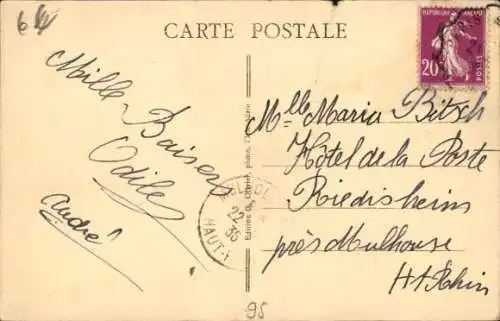 64
CARTE POSTALE
REPUBLIQUE FRANÇAISE
20c
POSTES
Mille
Baisers
Odile
André
22
36
HAUT-
Mlle Maria Bitsch
Hôtel de la Poste
Riedisheim
près Mulhouse
Ht Rhin
95